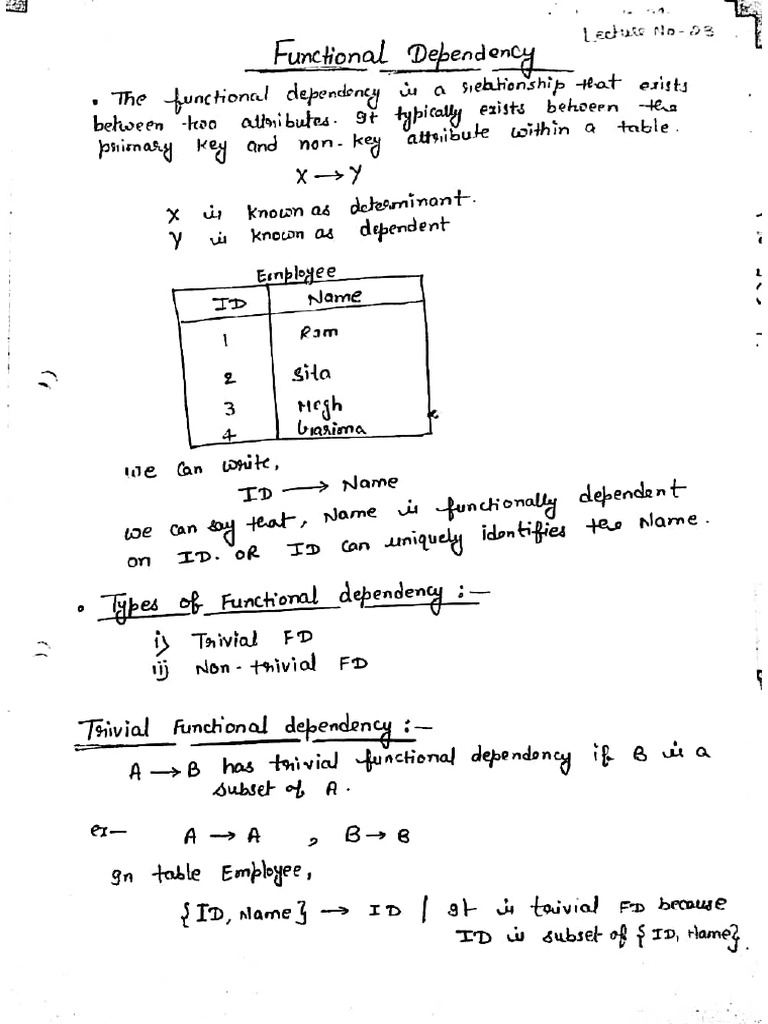 Lecture No-23
Functional Dependency
• The functional dependency is a relationship that exists
between two attributes. It typically exists between the
primary key and non-key attribute within a table.
X → Y
X is known as determinant.
Y is known as dependent
Employee
ID Name
1 Ram
2 Sita
3 Megh
4 Garima
We can write,
ID → Name
we can say that, Name is functionally dependent
on ID. OR ID can uniquely identifies the Name.
• Types of Functional dependency :-
i) Trivial FD
ii) Non-trivial FD
Trivial Functional dependency :-
A → B has trivial functional dependency if B is a
subset of A.
ex- A → A , B → B
In table Employee,
{ID, Name} → ID | It is trivial FD because
ID is subset of {ID, Name}.